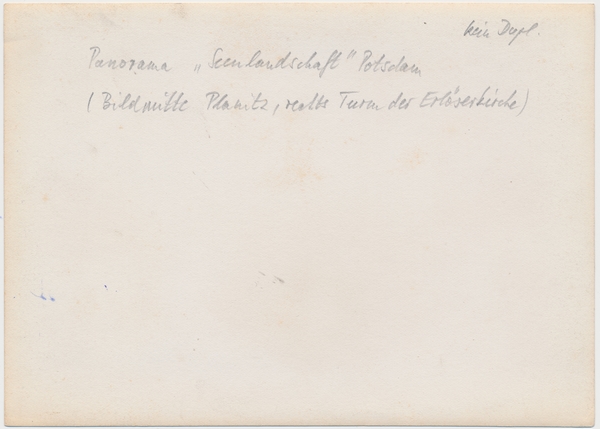 kein Dupl.
Panorama „Seenlandschaft" Potsdam
(Bildmitte Planitz, rechts Turm der Erlöserkirche)